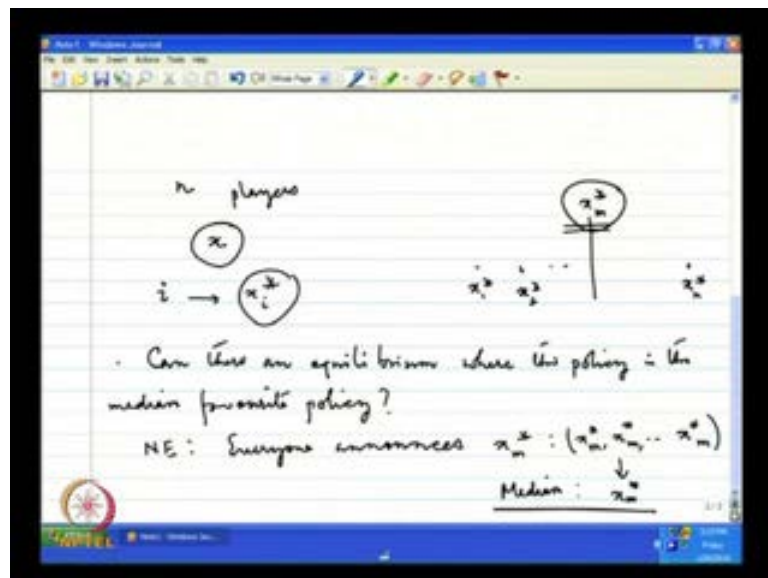 Note1 - Windows Journal
File Edit View Insert Actions Tools Help
Whole Page
n players
x
i → x_i^*
x_m^*
x_1^* x_2^* .. x_n^*
. Can there an equilibrium where the policy is the
median favourite policy?
NE: Everyone announces x_m^* : (x_m^*, x_m^*, .. x_m^*)
↓
Median: x_m^*
NPTEL